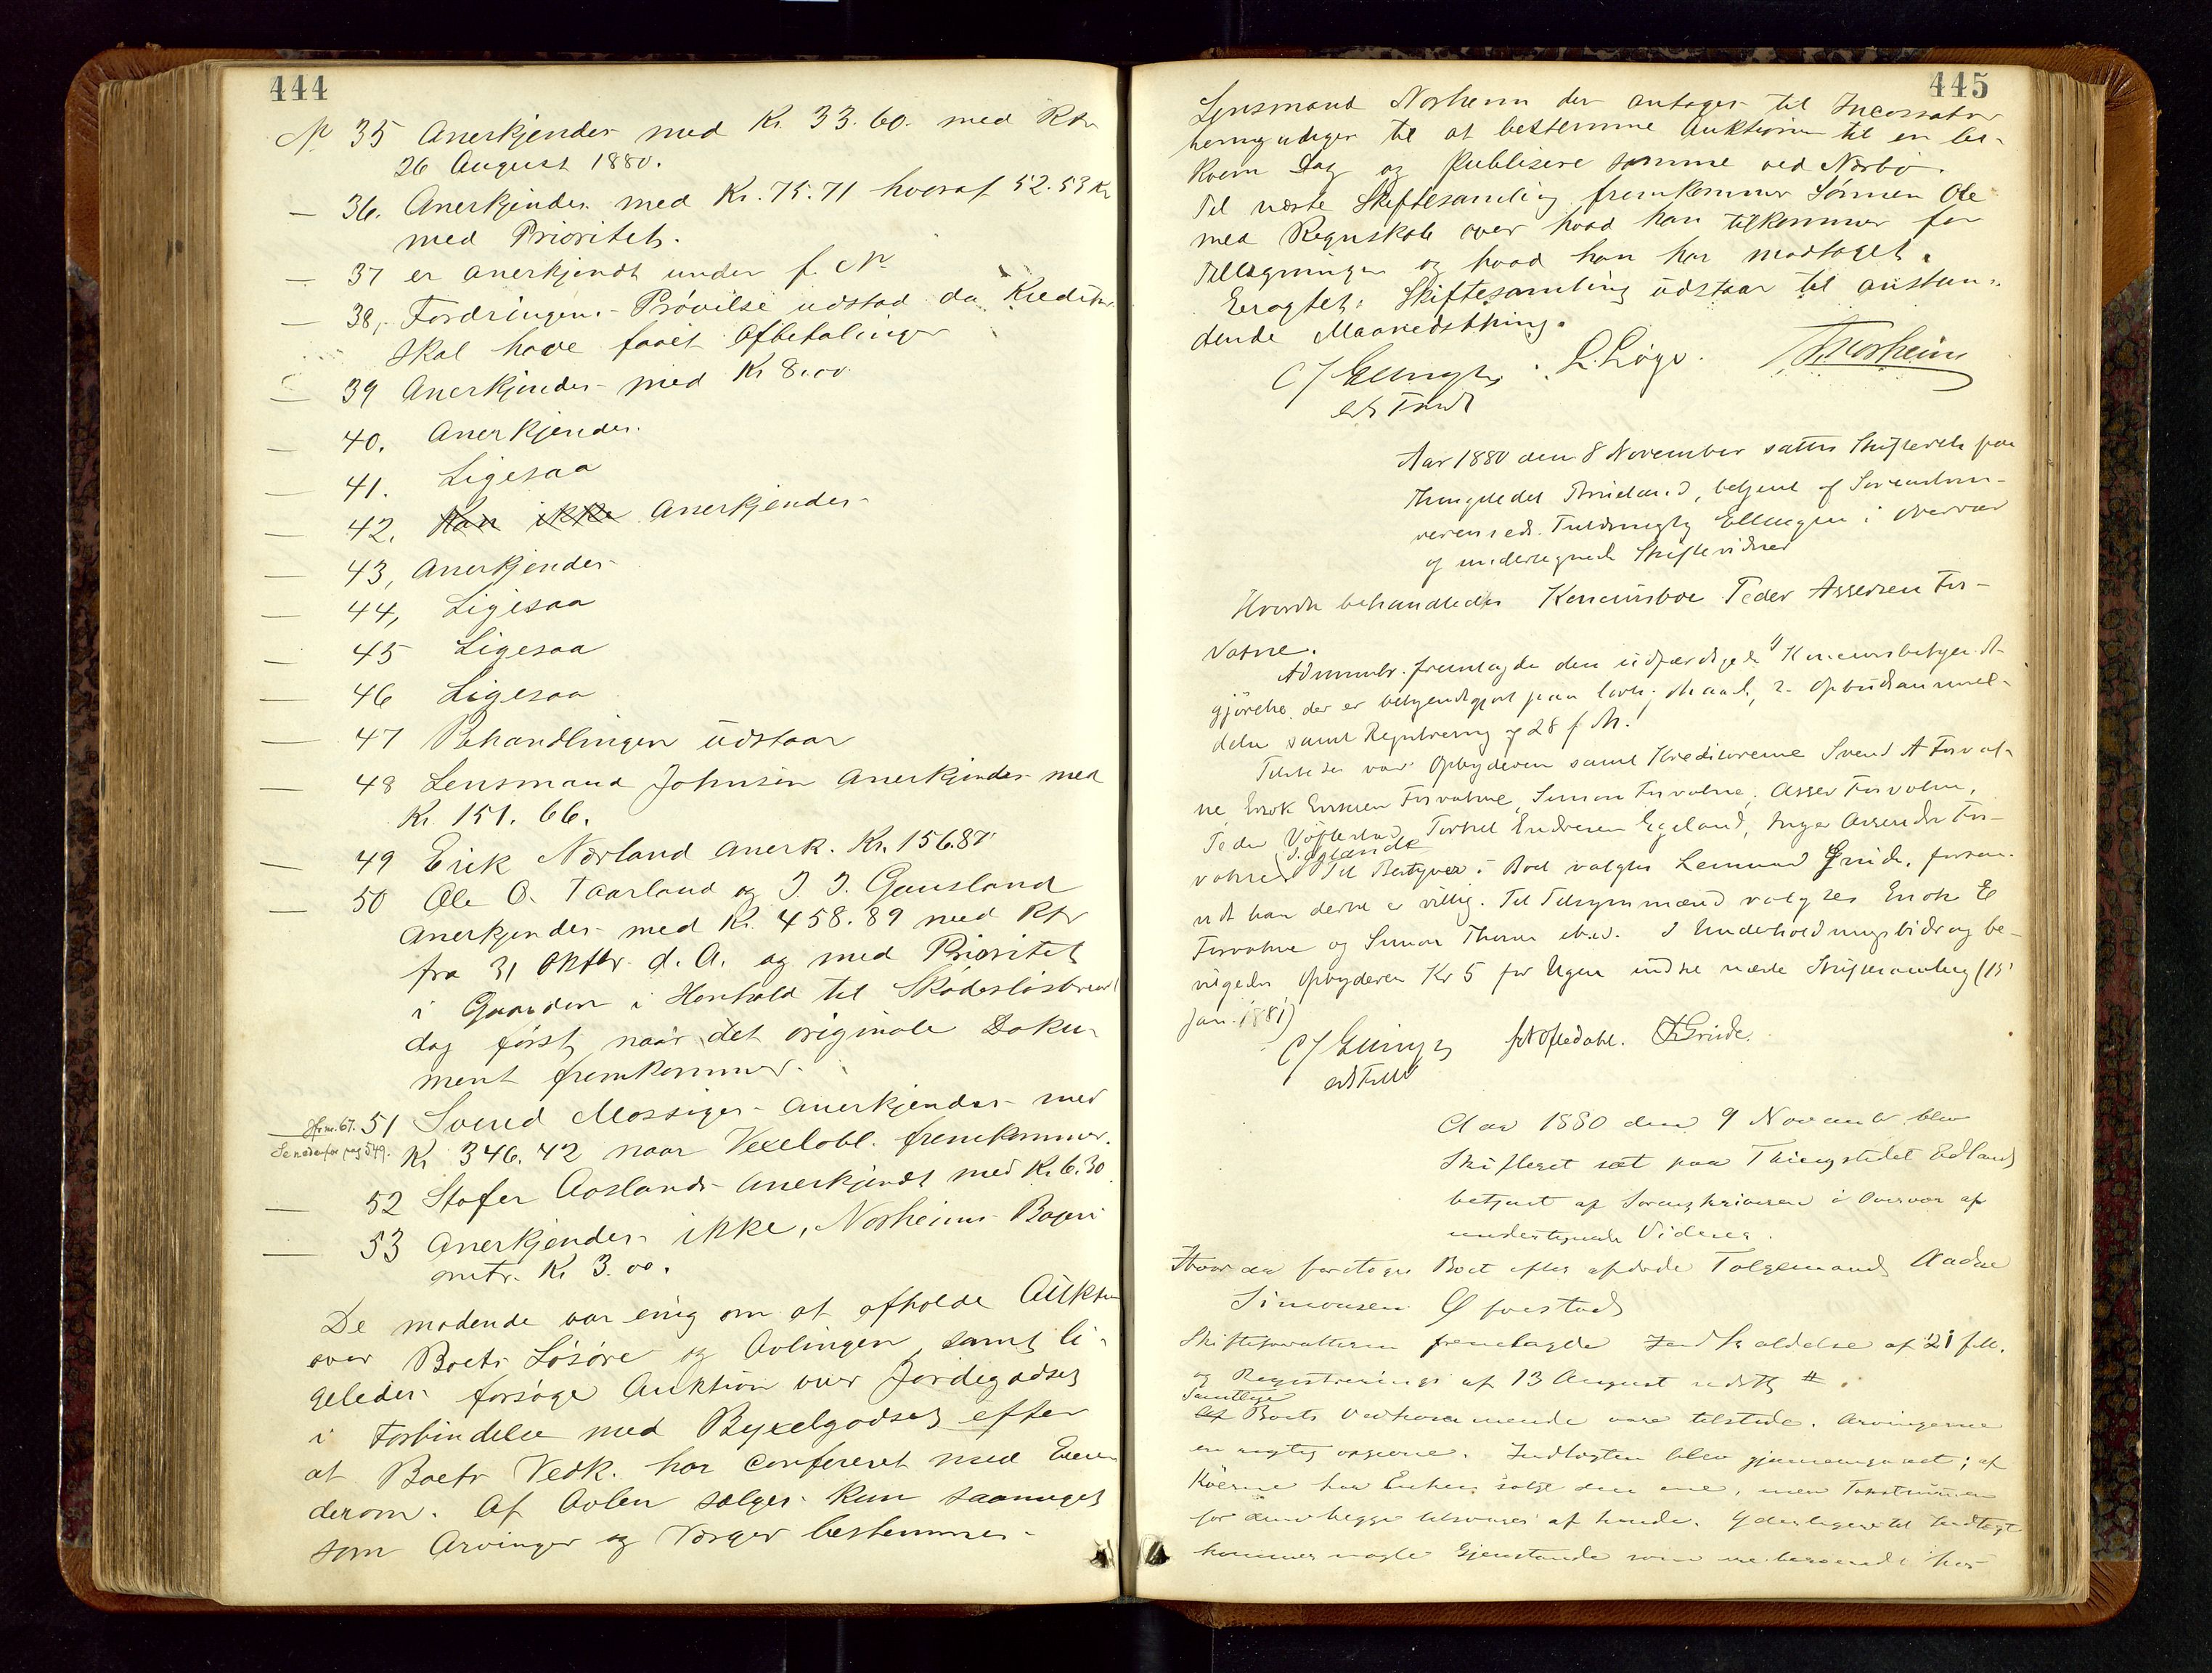 444
No 35 Anerkjendes med Kr 33.60. med Rtr
26 August 1880.
— 36. Anerkjendes med Kr. 75.71 hvoraf 52.53 Kr
med Prioritet.
— 37 er anerkjendt under f. No
— 38, Fordringens Prøvelse udstod da Kreditor
skal have faaet Afbetalinger
— 39 Anerkjendes med Kr 8.00
— 40. Anerkjendes.
— 41. Ligesaa
— 42. Kan ikke Anerkjendes
— 43, Anerkjendes
— 44, Ligesaa
— 45 Ligesaa
— 46 Ligesaa
— 47 Behandlingen udstaar
— 48 Lensmand Johnsen Anerkjendes med
Kr. 151.66.
— 49 Erik Nærland anerk. Kr. 156.87
— 50 Ole O. Taarland og J. J. Gausland
Anerkjendes med Kr. 458.89 med Rtr
fra 31 Oktbr d. A. og med Prioritet
i Gaarden i Henhold til Skadesløsbrevet
dog først naar det originale Doku-
ment fremkommer.
51 Svend Mossiges anerkjendes med
Se nedenfor pag 549. Kr 346.42 naar Vexelobl. fremkommer.
— 52 Stofer Aaslands anerkjendt med Kr. 6.30
— 53 Anerkjendes ikke, Norheims
Kr 3.00.
De mødende var enig om at afholde Auktion
over Boets Løsøre og Avlingen samt li-
geledes forsøge Auktion over Jordegodset
i Forbindelse med Bygselgodset efter
at Boets Vedk. har confereret med Enken
derom. Af Avlen sælges kun saameget
som Arvinger og Værger bestemmer.
445
Lensmand Norheim der antages til Incassator
bemyndiges til at bestemme Auktionen til en be-
kvem Dag og publisere samme ved Nærbø.
Til næste Skiftesamling fremkommer Sønnen Ole
med Regnskab over hvad han tilkommer for
Tillægninger og hvad han har modtaget.
Eragtet: Skiftesamling udstaar til anstun-
dende Maanedsthing.
C J Ellingsen L. Löge. Norheim
Aar 1880 den 8 November sattes Skifteret paa
Thingstedet betjent af Sorenskri-
verens ed. Fuldmægtig Ellingsen i Overvær
af undertegnede Skiftevidner
Hvorda behandledes Konkursboe Peder Assersen Fos-
vatne.
Adminstr. fremlagde den udfærdigede Konkursbekjendt-
gjørelse, der er bekjendtgjort paa lovl. Maade, 2. Opbudsanmel-
delse samt Registrering af 28 f. M.
Tilstede var Opbyderen samt Kreditorerne Svend A Fosvat-
ne, Enok Fosvatne, Simon Fosvatne, Asser Fosvatne,
Peder Torkel Endresen Egeland, Inger Fos-
vatne. Til Bestyrer i Boet valgtes Lensmand Grude, forsaa-
vidt han dertil er villig. Til Tilsynsmænd valgtes Enok E
Fosvatne og Simon ibid. I Underholdningsbidrag be-
vilgedes Opbyderen Kr 5 for Ugen indtil næste Skiftesamling (15
Jan. 1881)
C J Ellingsen Grude.
Aar 1880 den 9 Novembr blev
Skifteret sat paa Thingstedet Edland
betjent af Sorenskriveren i Overvær af
undertegnede Vidner.
Hvor da foretoges Boet efter afdøde Aadne
Simonsen
Skifteforvalteren fremlagde Indkaldelse af 21 f.M.
og Registrering af 13 August
Samtlige
Boets Vedkommende vare tilstede. Arvingerne
er rigtig opgivne. Indtægten blev gjennemgaaet; af
Køerne har Enken solgt den ene, men Taxtsummen
for dem begge tilsvares af hende. Yderligere til Indtægt
kommer nogle Gjenstande som ere beroende hos